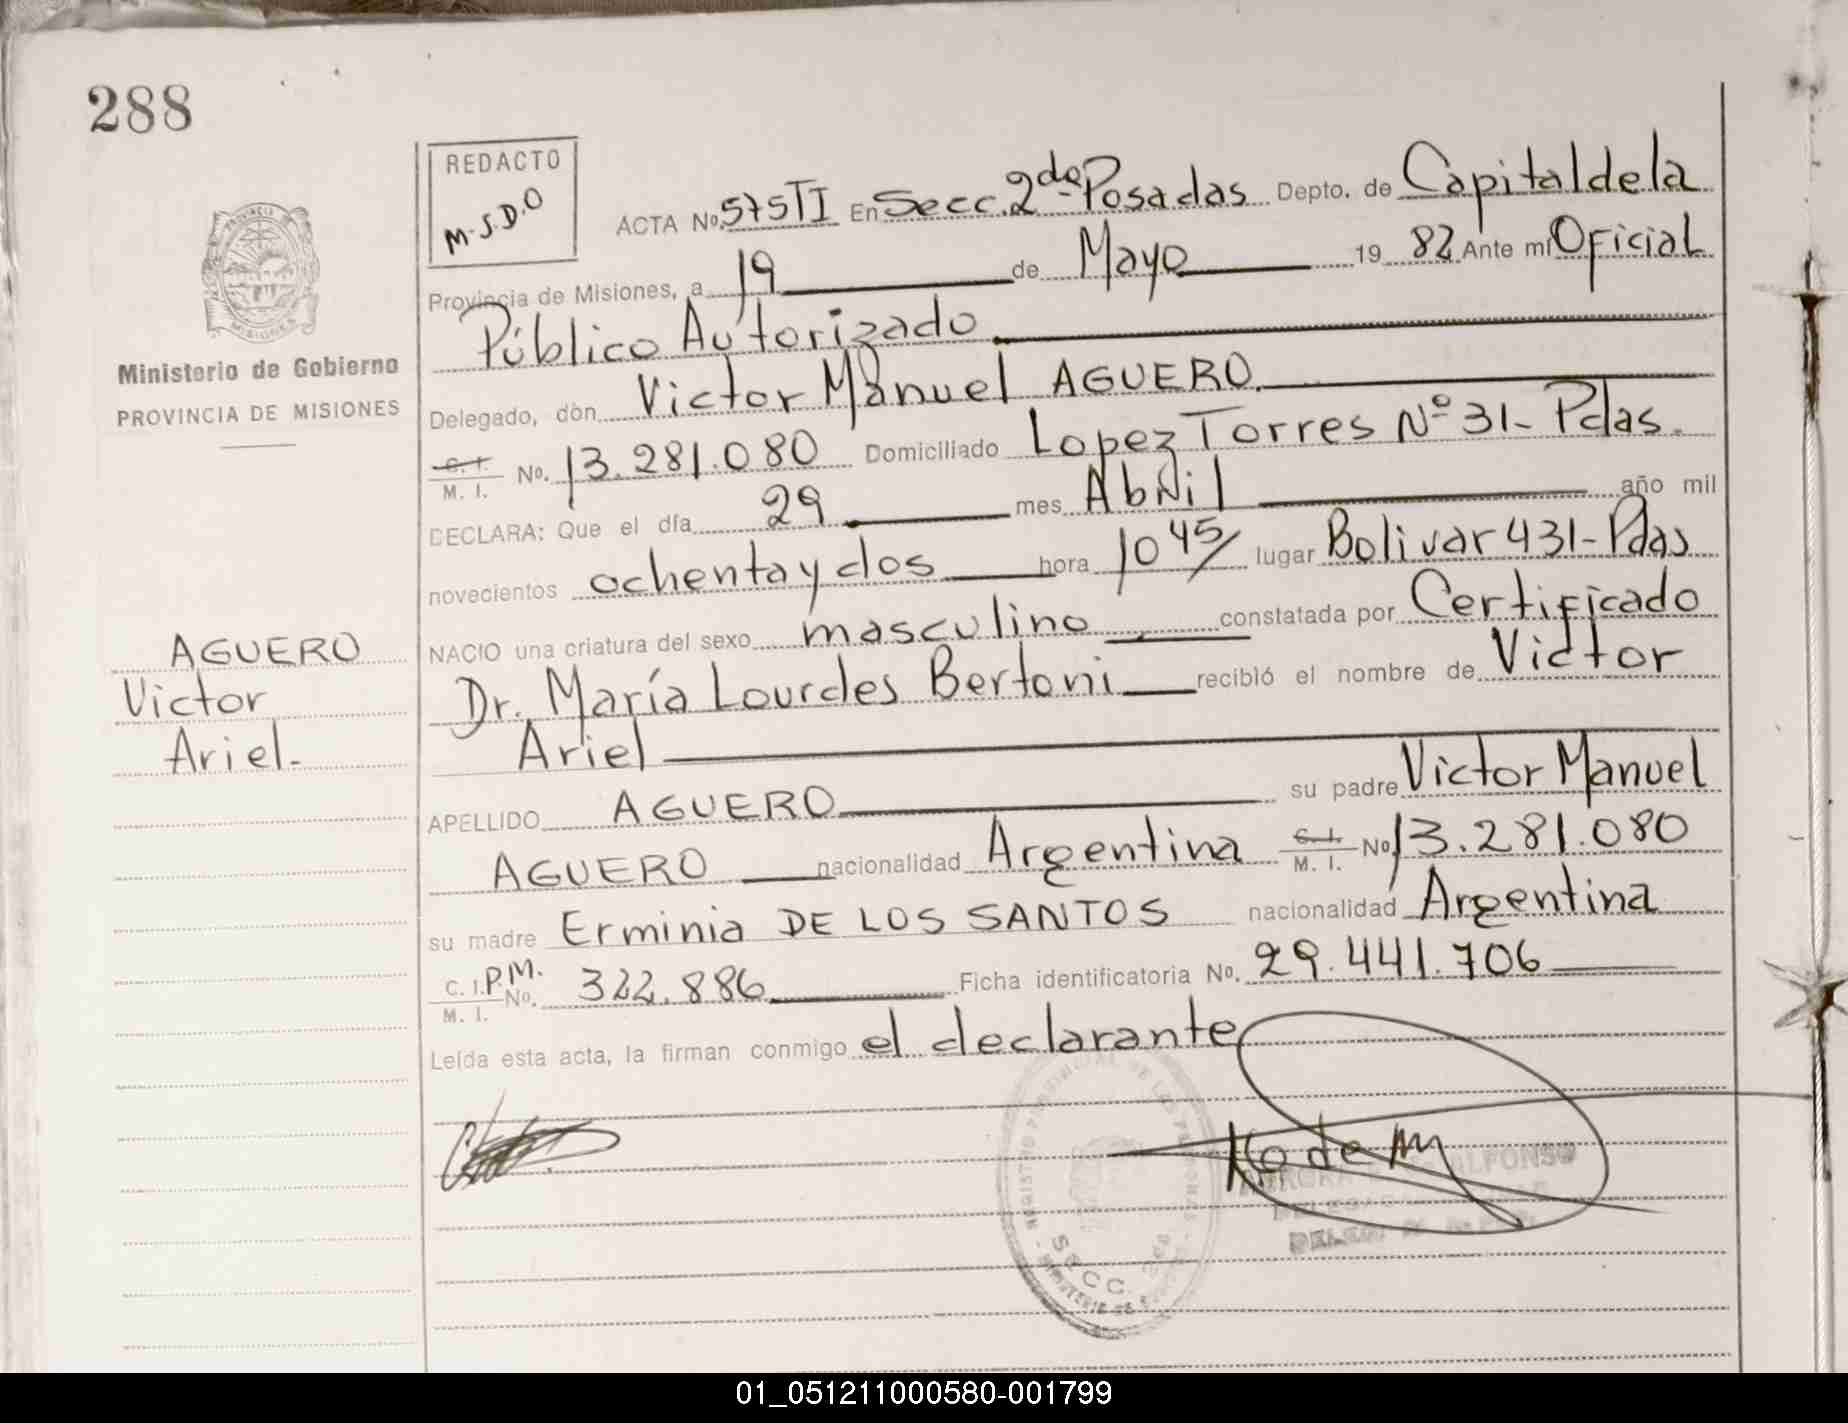 288
REDACTO
M.S.D.O
ACTA No. 575 TI En Secc. 2da Posadas Depto. de Capital de la
Provincia de Misiones, a 19 de Mayo 19 82 Ante mi Oficial
Público Autorizado
Delegado, don Victor Manuel AGUERO
C. I. M. I. No. 13.281.080 Domiciliado Lopez Torres Nº 31- Pdas.
DECLARA: Que el día 29 mes Abril año mil
novecientos ochenta y dos hora 10 45/ lugar Bolivar 431- Pdas
NACIO una criatura del sexo masculino constatada por Certificado
Dr. María Lourdes Bertoni recibió el nombre de Victor
Ariel
APELLIDO AGUERO su padre Victor Manuel
AGUERO nacionalidad Argentina C. I. M. I. No. 13.281.080
su madre Erminia DE LOS SANTOS nacionalidad Argentina
C. I. P.M. M. I. No. 322.886 Ficha identificatoria No. 29.441.706
Leída esta acta, la firman conmigo el declarante
PROVINCIA DE
MISIONES
Ministerio de Gobierno
PROVINCIA DE MISIONES
AGUERO
Victor
Ariel-
SECC.
ALFONSO
01_051211000580-001799